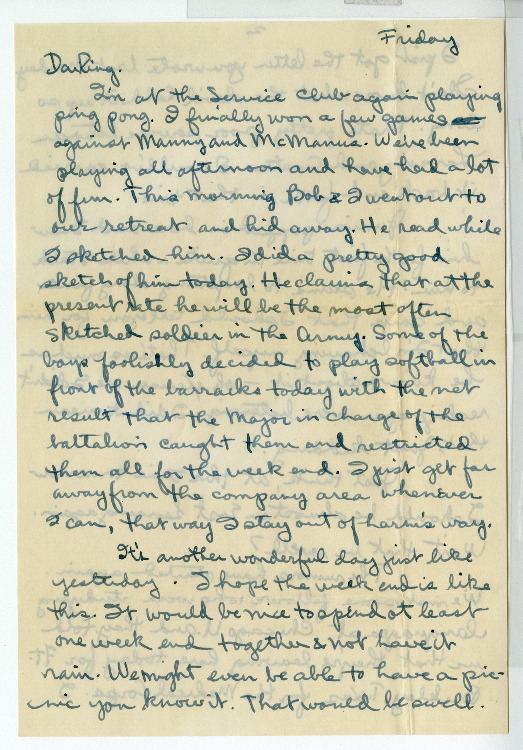 Friday
Darling.
I'm at the Service Club again playing
ping pong. I finally won a few games
against Manny and McManus. We've been
playing all afternoon and have had a lot
of fun. This morning Bob & I went out to
our retreat and hid away. He read while
I sketched him. I did a pretty good
sketch of him today. He claims that at the
present rate he will be the most often
sketched soldier in the Army. Some of the
boys foolishly decided to play softball in
front of the barracks today with the net
result that the Major in charge of the
battalion caught them and restricted
them all for the week end. I just get far
away from the company area whenever
I can, that way I stay out of harm's way.
It's another wonderful day just like
yesterday. I hope the week end is like
this. It would be nice to spend at least
one week end together & not have it
rain. We might even be able to have a pic-
nic you know it. That would be swell.